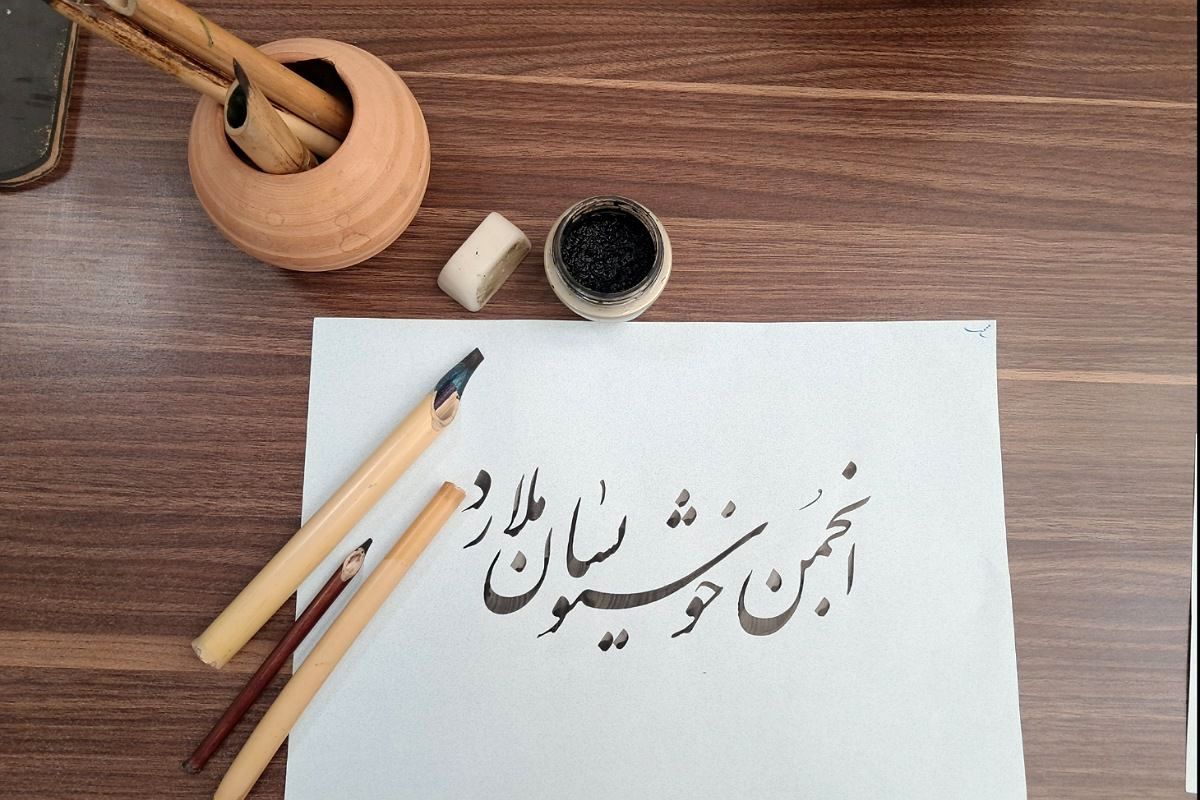 انجمن خوشنویسان ملارد